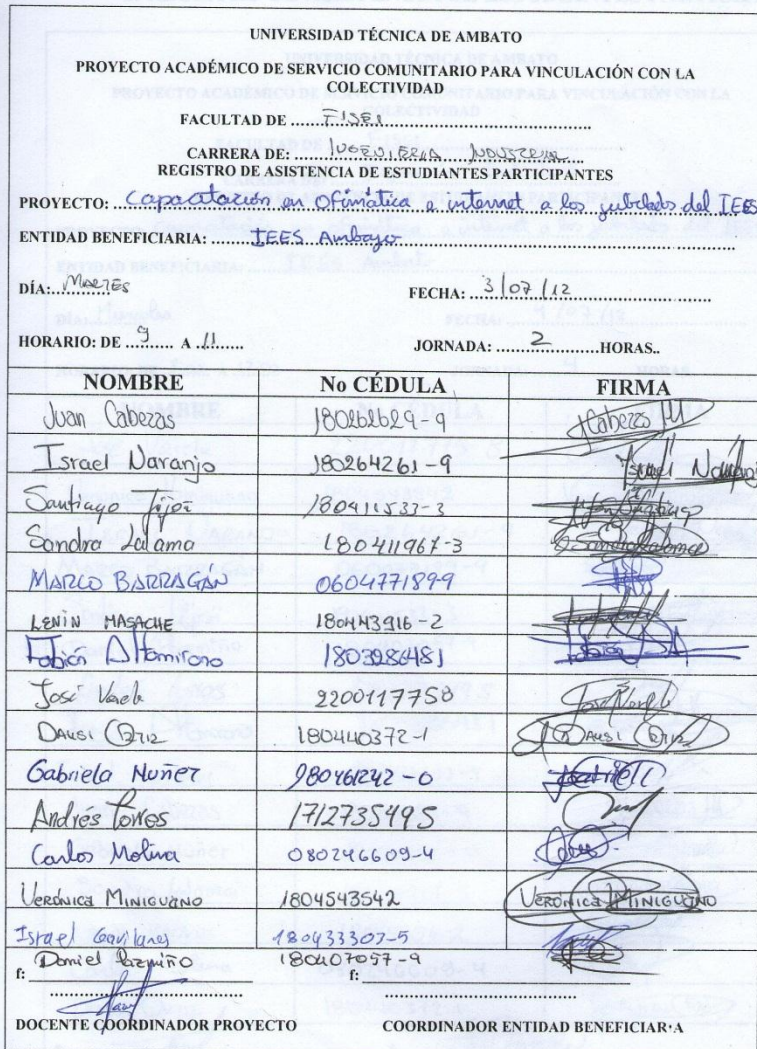 UNIVERSIDAD TÉCNICA DE AMBATO
PROYECTO ACADÉMICO DE SERVICIO COMUNITARIO PARA VINCULACIÓN CON LA
COLECTIVIDAD
FACULTAD DE ....FISEI....
CARRERA DE: ....INGENIERIA INDUSTRIAL....
REGISTRO DE ASISTENCIA DE ESTUDIANTES PARTICIPANTES
PROYECTO: Capacitación en Ofimática e internet a los jubilados del IEES
ENTIDAD BENEFICIARIA: ....IEES Ambato....
DÍA: MARTES FECHA: 3/07/12
HORARIO: DE ..9.. A ..11.. JORNADA: ....2....HORAS..
NOMBRE No CÉDULA FIRMA
Juan Cabezas 180262629-9 Cabezas
Israel Naranjo 180264261-9 Israel Naranjo
Santiago 180411533-3
Sandra Lalama 180411967-3 Sandra Lalama
MARCO BARRAGAN 0604771899
LENIN MASACHE 180443916-2
Fabian Altamirano 1803286481 Fabian
José Varela 2200117758 José Varela
DAUSI ORTIZ 180440372-1 DAUSI ORTIZ
Gabriela Nuñez 180461242-0
Andres Torres 1712735495
Carlos Molina 080246609-4
VERÓNICA MINIGUANO 1804543542 VERÓNICA MINIGUANO
Israel Gavilanes 180433307-5
Daniel Pazmiño 180407057-9
f: f:
DOCENTE COORDINADOR PROYECTO COORDINADOR ENTIDAD BENEFICIARIA